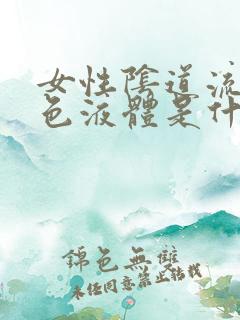 女性陰道流
色液體是什
錦色無雙
未经同意禁止转载